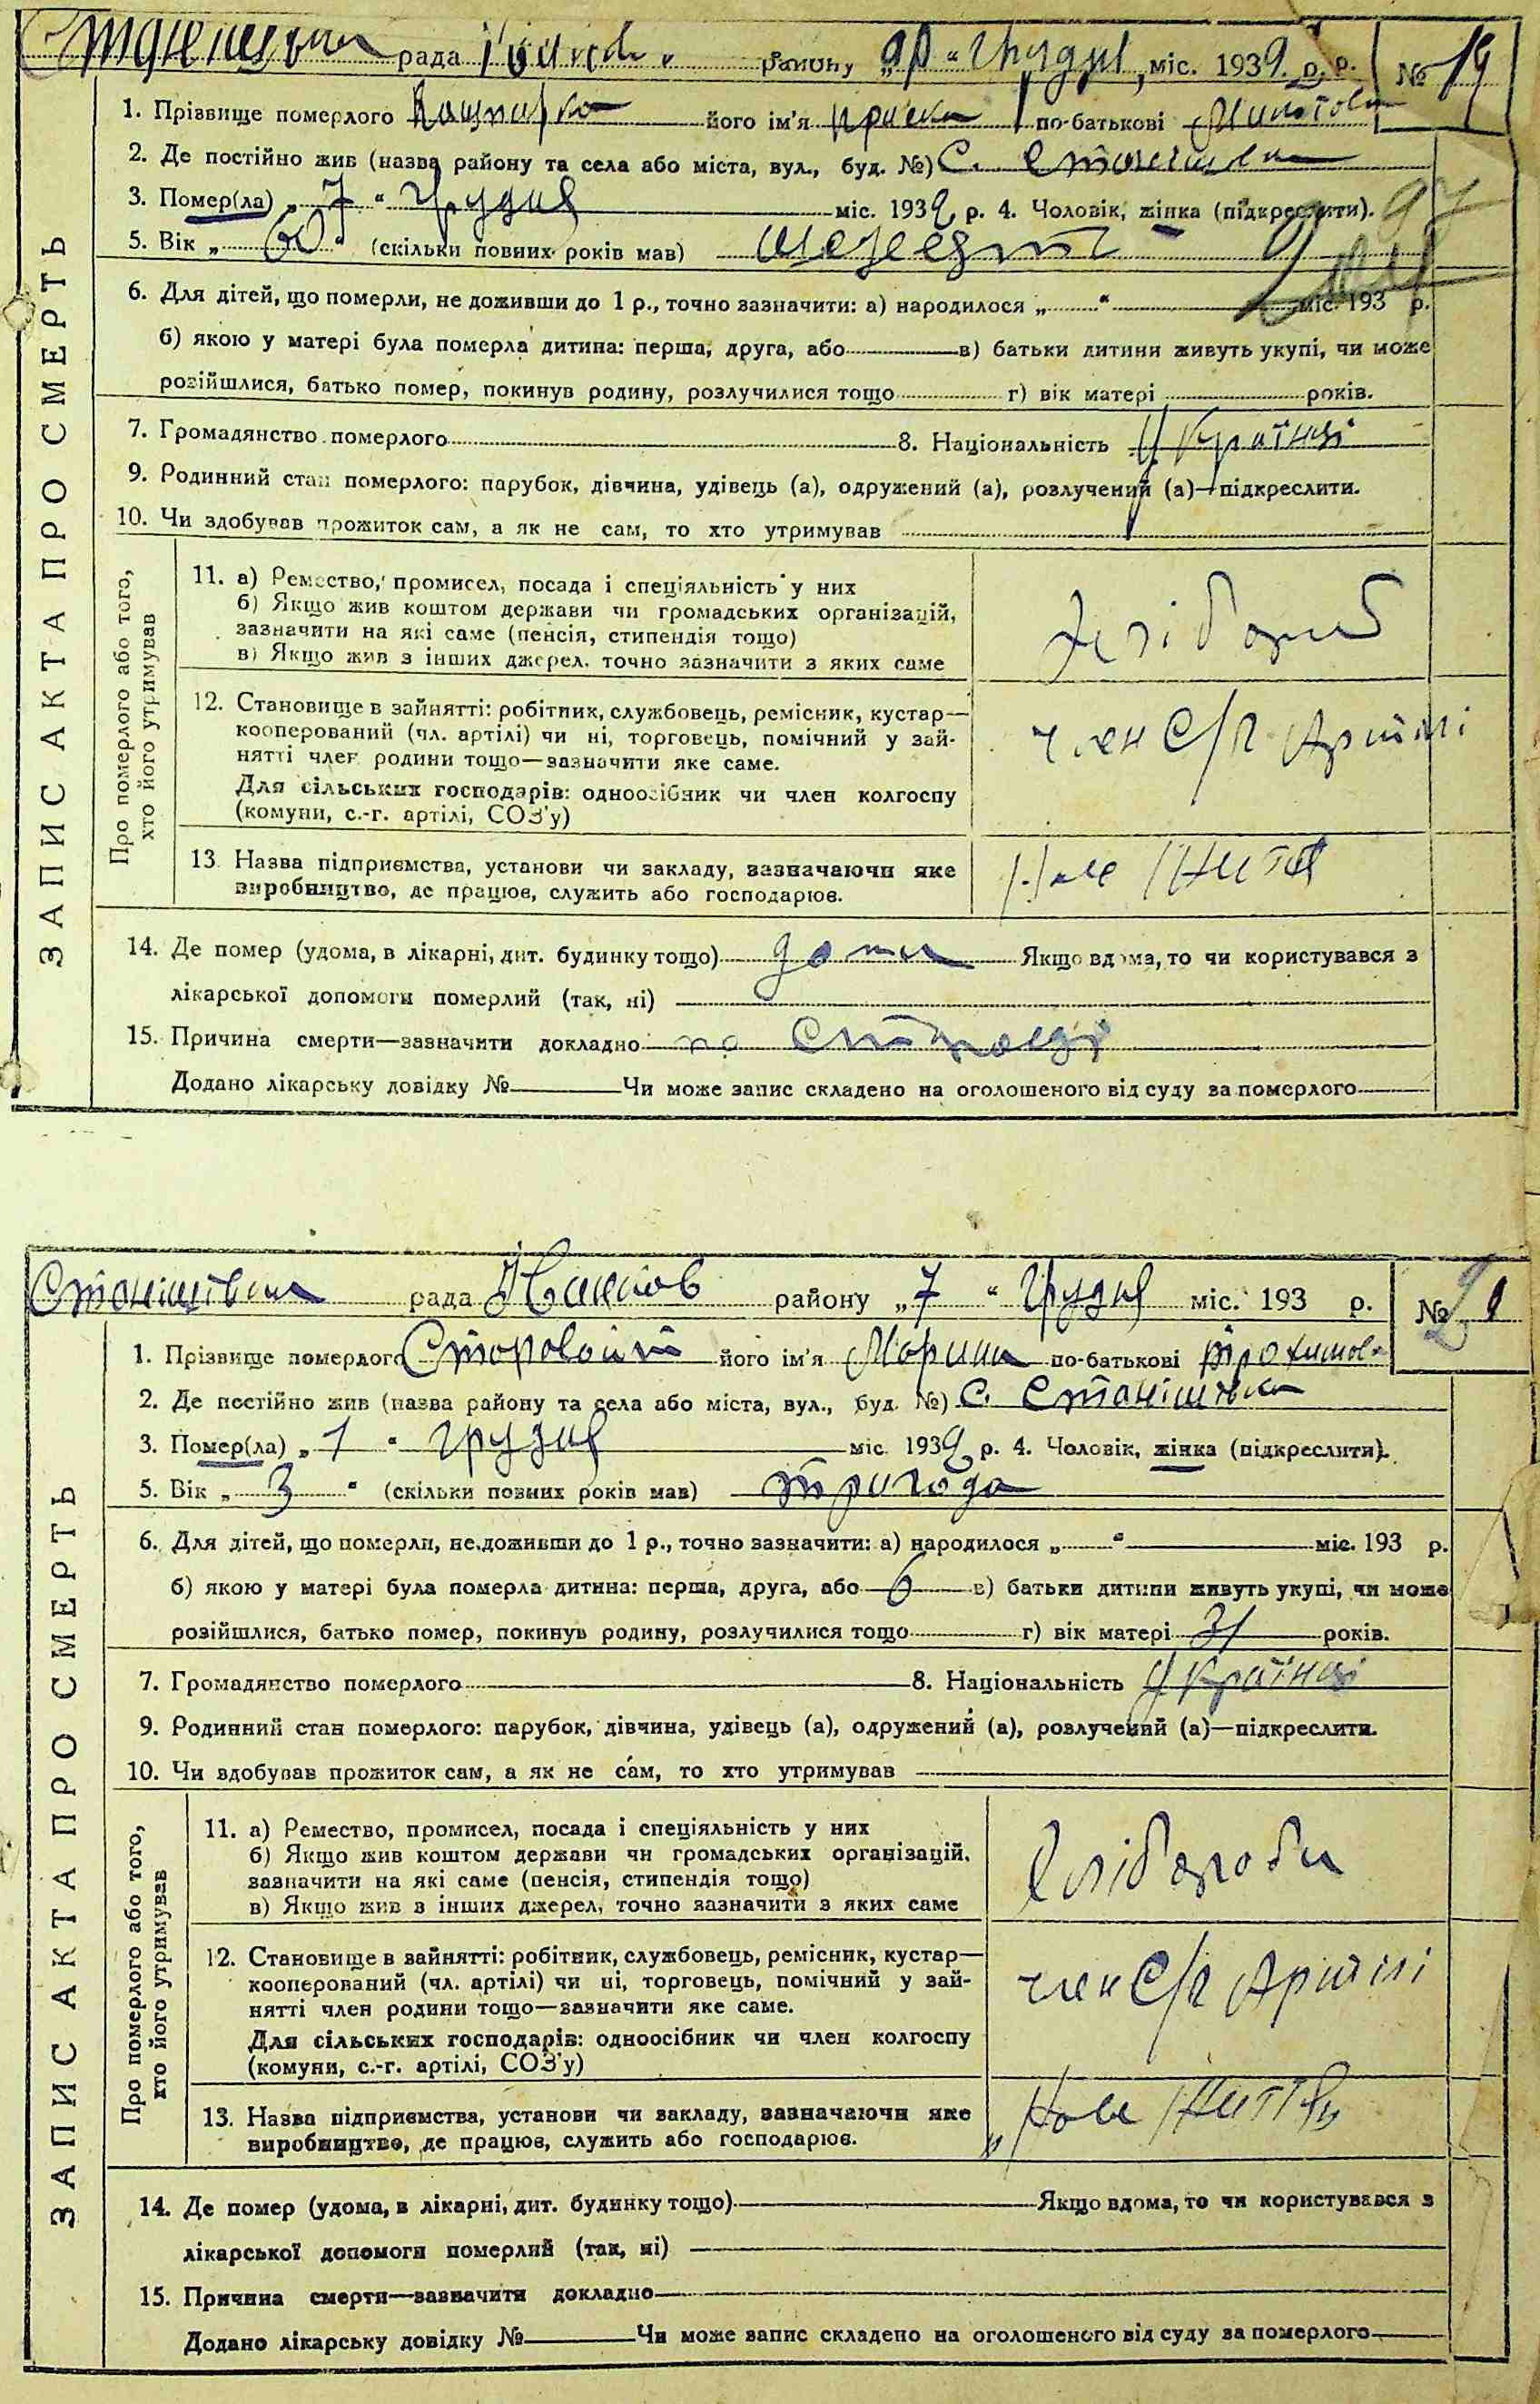 рада району „ “ Грудня міс. 1939 р. № 19
1. Прізвище померлого його ім'я по-батькові
2. Де постійно жив (назва району та села або міста, вул., буд. №) С.
3. Помер(ла) „ 7 “ Грудня міс. 1939 р. 4. Чоловік, жінка (підкреслити).
5. Вік „ 60 “ (скільки повних років мав)
6. Для дітей, що померли, не доживши до 1 р., точно зазначити: а) народилося „ “ міс. 193 р.
б) якою у матері була померла дитина: перша, друга, або в) батьки дитини живуть укупі, чи може
розійшлися, батько помер, покинув родину, розлучилися тощо г) вік матері років.
7. Громадянство померлого 8. Національність Українці
9. Родинний стан померлого: парубок, дівчина, удівець (а), одружений (а), розлучений (а)—підкреслити.
10. Чи здобував прожиток сам, а як не сам, то хто утримував
Про померлого або того,
хто його утримував
11. а) Ремество, промисел, посада і спеціяльність у них
б) Якщо жив коштом держави чи громадських організацій,
зазначити на які саме (пенсія, стипендія тощо)
в) Якщо жив з інших джерел, точно зазначити з яких саме
хлібороб
12. Становище в зайнятті: робітник, службовець, ремісник, кустар—
кооперований (чл. артілі) чи ні, торговець, помічний у зай-
нятті член родини тощо—зазначити яке саме.
Для сільських господарів: одноосібник чи член колгоспу
(комуни, с.-г. артілі, СОЗ'у)
член С/Г Артілі
13. Назва підприємства, установи чи закладу, зазначаючи яке
виробництво, де працює, служить або господарює.
14. Де помер (удома, в лікарні, дит. будинку тощо) дома Якщо вдома, то чи користувався з
лікарської допомоги померлий (так, ні)
15. Причина смерти—зазначити докладно по
Додано лікарську довідку № Чи може запис складено на оголошеного від суду за померлого
ЗАПИС АКТА ПРО СМЕРТЬ
Станішівка рада району „ 7 “ Грудня міс. 193 р. №
1. Прізвище померлого його ім'я Марина по-батькові Трохимов.
2. Де постійно жив (назва району та села або міста, вул., буд. №) С. Станішівка
3. Помер(ла) „ 1 “ грудня міс. 1939 р. 4. Чоловік, жінка (підкреслити).
5. Вік „ 3 “ (скільки повних років мав) три года
6. Для дітей, що померли, не доживши до 1 р., точно зазначити: а) народилося „ “ міс. 193 р.
б) якою у матері була померла дитина: перша, друга, або 6 в) батьки дитини живуть укупі, чи може
розійшлися, батько помер, покинув родину, розлучилися тощо г) вік матері 31 років.
7. Громадянство померлого 8. Національність Українці
9. Родинний стан померлого: парубок, дівчина, удівець (а), одружений (а), розлучений (а)—підкреслити.
10. Чи здобував прожиток сам, а як не сам, то хто утримував
Про померлого або того,
хто його утримував
11. а) Ремество, промисел, посада і спеціяльність у них
б) Якщо жив коштом держави чи громадських організацій,
зазначити на які саме (пенсія, стипендія тощо)
в) Якщо жив з інших джерел, точно зазначити з яких саме
хлібороби
12. Становище в зайнятті: робітник, службовець, ремісник, кустар—
кооперований (чл. артілі) чи ні, торговець, помічний у зай-
нятті член родини тощо—зазначити яке саме.
Для сільських господарів: одноосібник чи член колгоспу
(комуни, с.-г. артілі, СОЗ'у)
член С/Г Артілі
13. Назва підприємства, установи чи закладу, зазначаючи яке
виробництво, де працює, служить або господарює.
14. Де помер (удома, в лікарні, дит. будинку тощо) Якщо вдома, то чи користувався з
лікарської допомоги померлий (так, ні)
15. Причина смерти—зазначити докладно
Додано лікарську довідку № Чи може запис складено на оголошеного від суду за померлого
ЗАПИС АКТА ПРО СМЕРТЬ